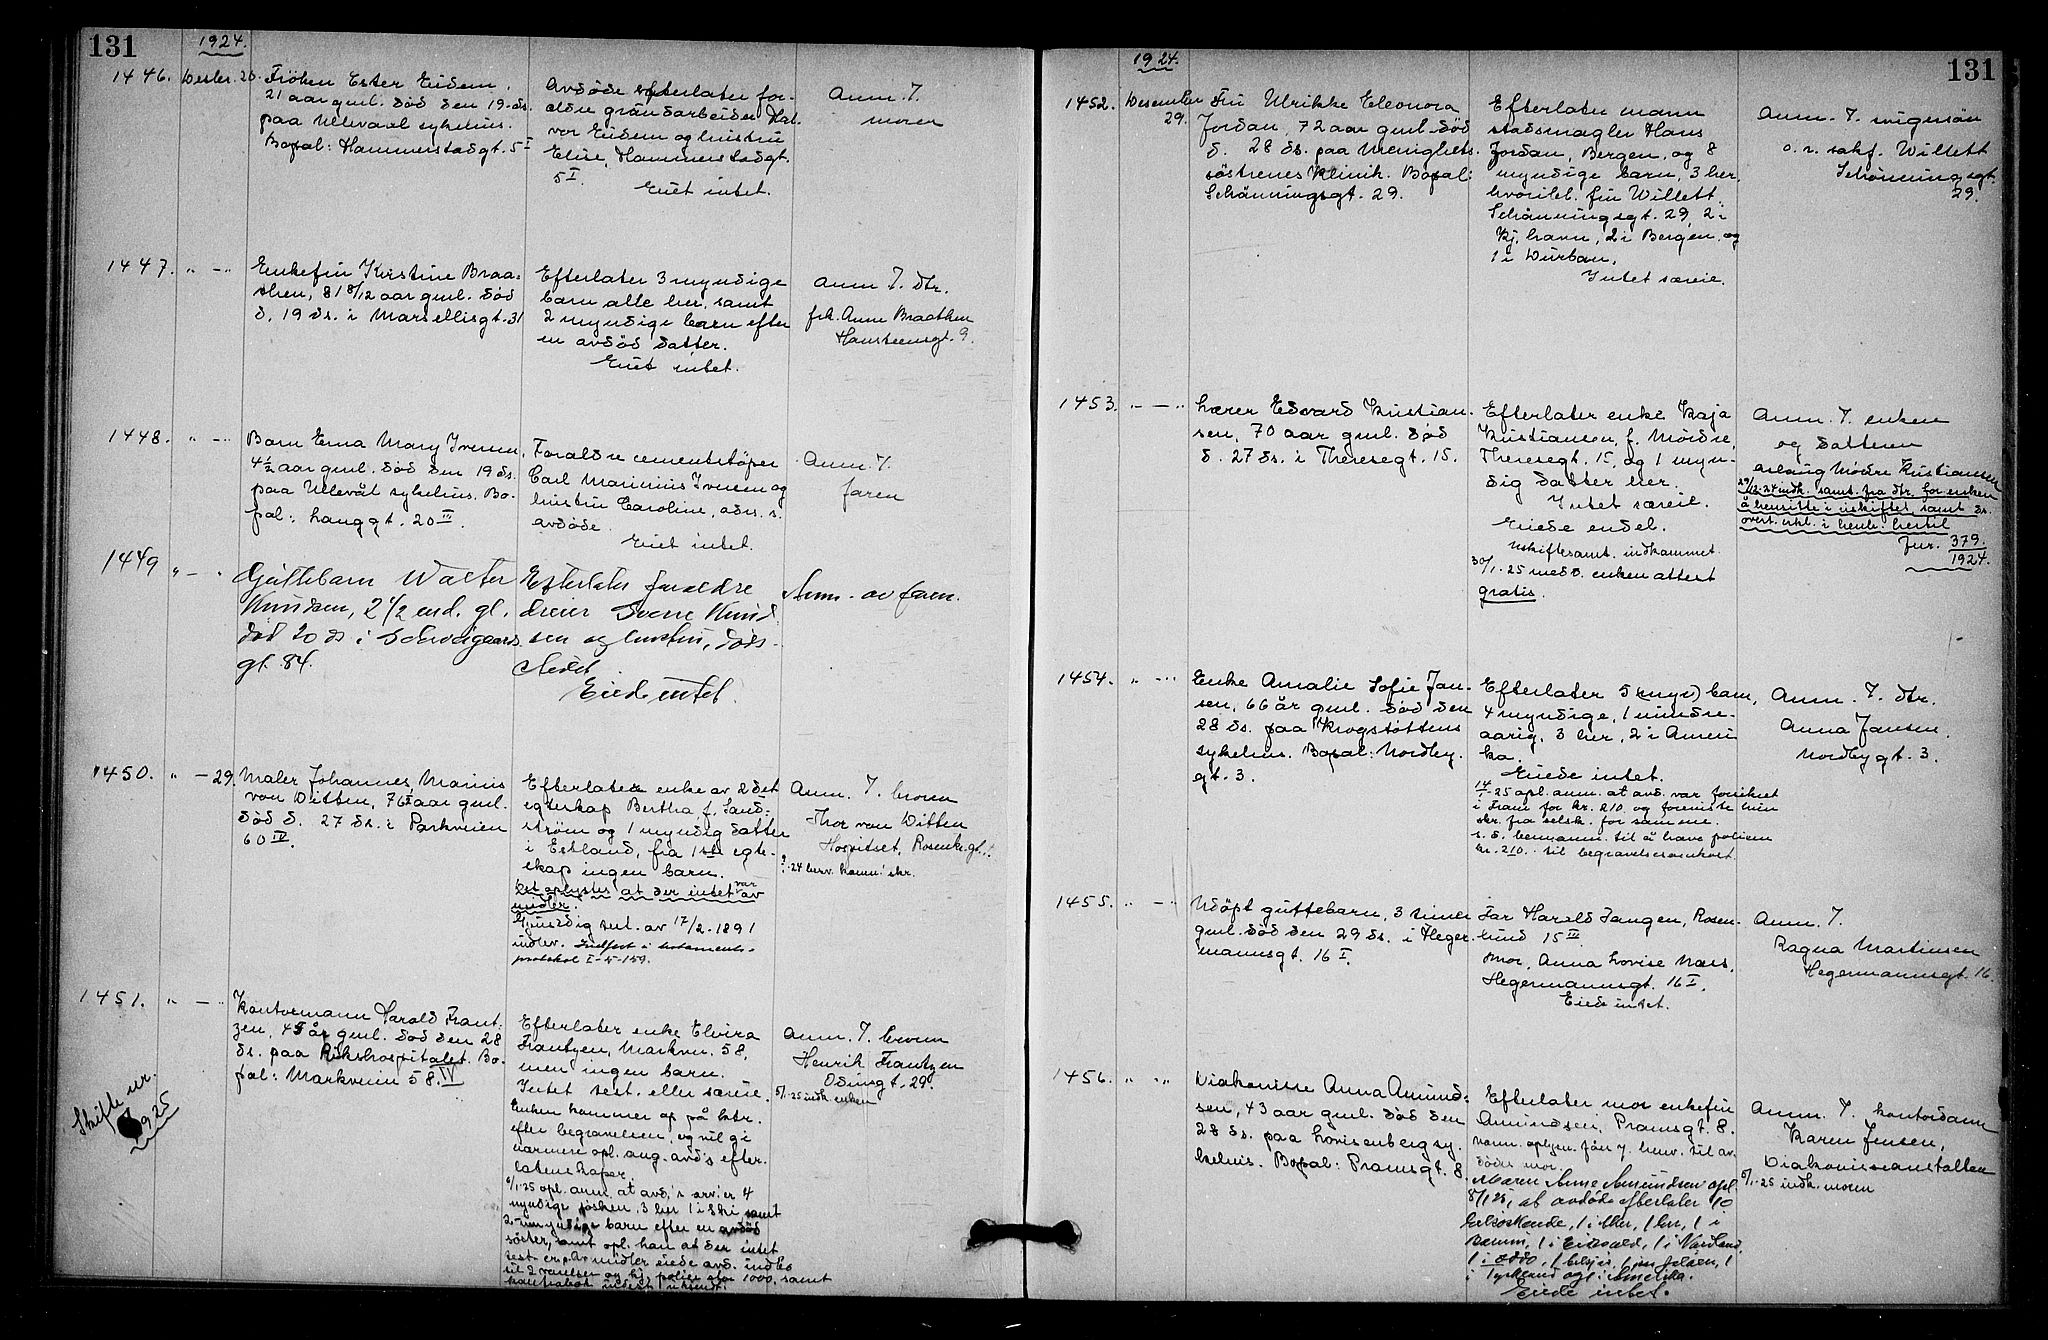 131
1924.
1446. Desbr. 20. Frøken Ester Eidem,
21 aar gml. død den 19. ds.
paa Ullevaal sykehus.
Bopæl: Hammerstadgt. 5 I
Avdøde efterlater for-
ældre grundarbeider Hal-
vor Eidem og hustru
Elise, Hammerstadgt.
5 I.
Eiet intet.
Anm. f.
moren
1447. " — " Enkefru Kristine Braa-
then, 81 8/12 aar gml. død
d. 19 ds. i Marsellisgt. 31
Efterlater 3 myndige
barn alle her, samt
2 myndige barn efter
en avdød datter.
Eiet intet.
Anm. f. dtr.
frk. Anne Braathen
Hansteensgt. 9.
1448. " — " Barn Erna Mary Iversen,
4 1/2 aar gml. død den 19 ds.
paa Ullevål sykehus. Bo-
pæl: Langgt. 20 III.
Forældre cementstøper
Carl Marinius Iversen og
hustru Caroline, adrs. s.
avdøde.
Eiet intet.
Anm. f.
faren
1449 " — " Guttebarn Walter
Knudsen, 2 1/2 md. gl.
død 20 ds i Schweigaards
gt. 84.
Efterlater forældre
dreier Sverre Knud
sen og hustru, døds-
stedet.
Eiede intet.
Anm. av faren.
1450. " — 29. Maler Johannes Marius
von Ditten, 76 aar gml.
død d. 27 ds. i Parkveien
60 IV.
Efterlater enke av 2det
egteskap Bertha f. Sand-
strøm og 1 myndig datter
i Estland, fra 1ste egte-
skap ingen barn.
Det oplystes at der intet var av
midler.
Gjensidig test. av 17/2-1891
indlev. Indført i testaments-
protokol I-5-159.
Anm. f. broren
Thor von Ditten
Hospitset, Rosenkr.gt.
1451. " — " Kontormann Harald Frant-
zen, 45 år gml. død den 28
ds. paa Rikshospitalet. Bo-
pæl: Markveien 58. IV
Skifte nr.
1925
Efterlater enke Elvira
Frantzen, Markvn. 58,
men ingen barn.
Intet test. eller særeie.
Enken kommer op på ktr.
efter begravelsen, og vil gi
nærmere opl. ang. avd's efter-
latenskaper
6/1-25 opl. anm. at avd.'s arv. er 4
myndige søsken, 3 her 1 i Ski samt
2 umyndige barn efter en avdød
søster, samt opl. han at der intet
test. er, Av midler eiede avd. indbo
til 2 værelser og kj, polise stor 1000, samt
Anm. f. broren
Henrik Frantzen
Odinsgt. 29.
5/1-25 indk. enken
131
1924.
1452. Desember
29. Fru Ulrikke Eleonora
Jordan, 72 aar gml. død
d. 28 ds. paa Menighets-
søstrenes Klinik. Bopæl:
Schønningsgt. 29.
Efterlater mann
stadsmægler Hans
Jordan, Bergen, og 8
myndige barn, 3 her,
hvoribl. fru Willett,
Schønningsgt. 29, 2 i
Kj. havn, 2 i Bergen og
1 i Durban.
Intet særeie.
Anm. f. svigersøn
o. r. sakf. Willett
Schønningsgt.
29.
1453. " — " Lærer Edvard Kristian-
sen, 70 aar gml. død
d. 27 ds. i Theresegt. 15.
Efterlater enke Kaja
Kristiansen, f. Mørdre,
Theresegt. 15, og 1 myn-
dig datter her.
Intet særeie.
Eiede endel.
Uskiftesamt. indkommet
30/1-25 medd. enken attest
gratis.
Anm. f. enken
og datteren
Aslaug Mørdre Kristiansen
29/12-24 indk. samt. fra dtr. for enken
å hensitte i uskiftet, samt ds.
overt. erkl. i henh. hertil
Jur. 379.
1924.
1454. " — " Enke Amalie Sofie Jan-
sen, 66 år gml. død den
28 ds. paa Krogstøttens
sykehus. Bopæl: Nordby-
gt. 3.
Efterlater 5 barn,
4 myndige, 1 mindre-
aarig, 3 her, 2 i Ameri
ka.
Eiede intet.
14/1-25 opl. anm. at avd. var forsikret
i Fram for kr. 210 og foreviste hun
skr. fra selsk. for samme.
s. d. bemynn. til å heve polisen
kr. 210. til begravelsesomkost.
Anm. f. dtr.
Anna Jansen.
Nordbygt. 3.
1455. " — " Udøpt guttebarn, 3 timer
gml. død den 29 ds. i Heger-
mannsgt. 16 I.
Far Harald Tangen, Rosen-
lund 15 III
Mor, Anna Lovise Næss,
Hegermannsgt. 16 I.
Eiede intet.
Anm. f.
Ragna Martinsen
Hegermannsgt. 16
1456. " " Diakonisse Anna Amund-
sen, 43 aar gml. død den
28 ds. paa Lovisenberg sy-
kehus. Bopæl: Pramsgt. 8.
Efterlater mor enkefru
Amundsen, Pramsgt. 8.
Nærm. oplysn. fåes v. henv. til av-
dødes mor.
Moren Anne Amundsen opl.
8/1 25, at avdøde efterlater 10
helsøskende, 1 i Aker, 1 her, 1 i
Bærum, 1 i Eidsvold, 1 i Nordland,
1 i Odda, 1 tilsjøs, 1 1
i Tyskland og 1 i Amerika.
Eiede intet.
Anm. f. kontordame
Karen Jensen,
Diakonisseanstalten
5/1-25 indk. moren